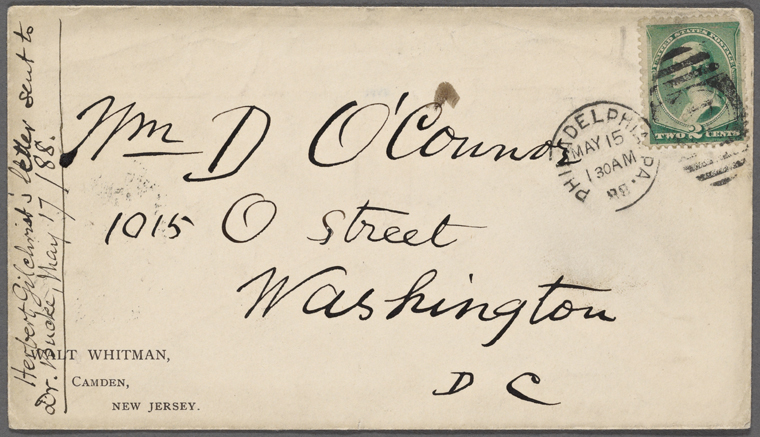 Herbert Gilchrist's letter sent to
Dr. Bucke, May 17/88.
UNITED STATES POSTAGE
2
TWO CENTS
PHILADELPHIA, PA.
MAY 15
1 30 AM
88
Wm D O'Connor
1015 O Street
Washington
D C
WALT WHITMAN,
CAMDEN,
NEW JERSEY.